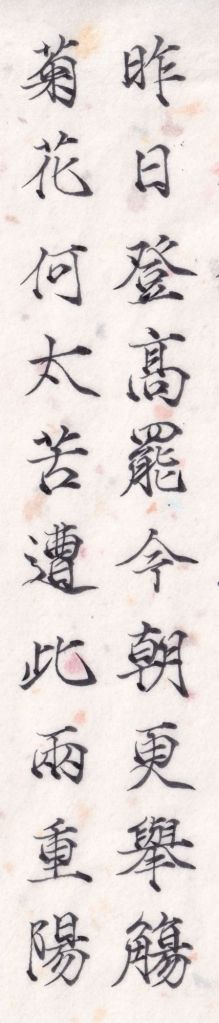 昨日登髙罷今朝更舉觴
菊花何太苦遭此兩重陽